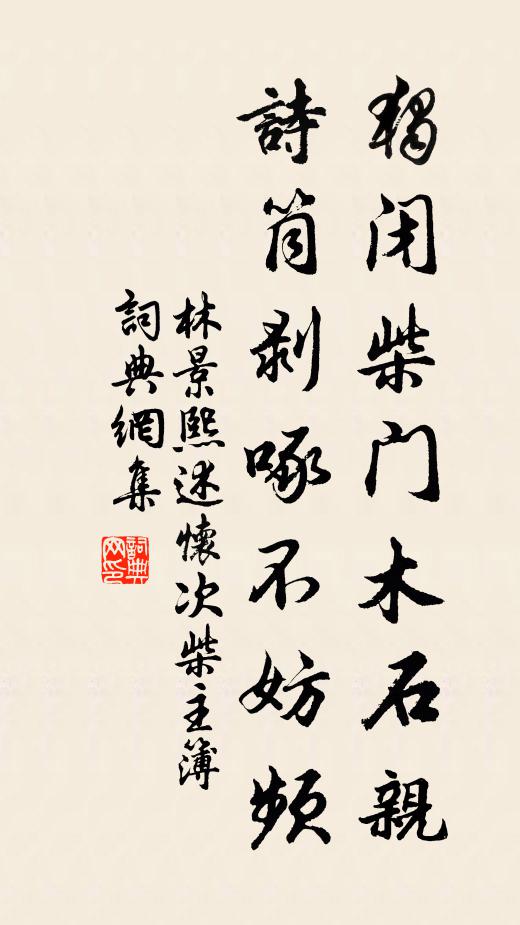 獨閉柴門木石親
詩筒剝啄不妨頻
林景熙述懷次柴主簿
詞典網集
詞典網印